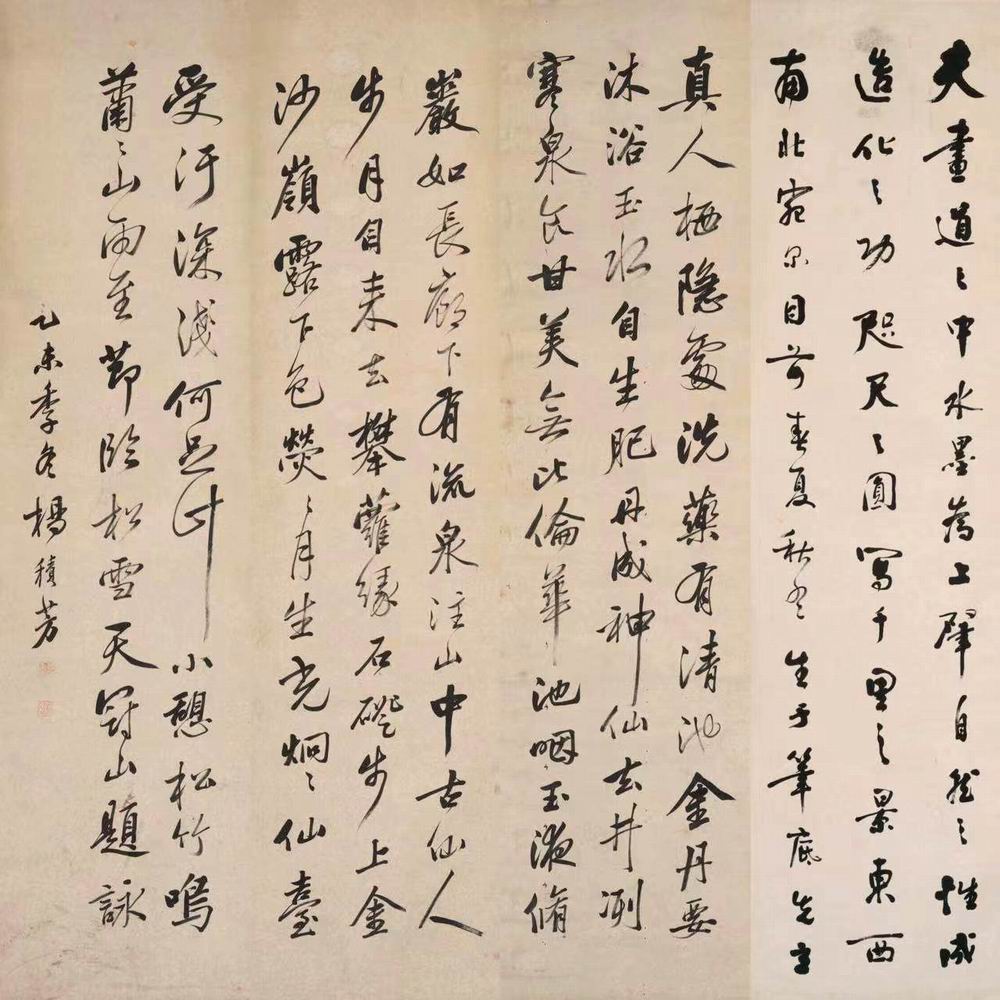 夫畫道〻中水墨為上肇自然〻性成
造化〻功咫尺〻圖寫千里之景東西
南北宛尔目前春夏秋冬生于筆底先立
真人栖隱處洗藥有清池金丹要
沐浴玉水自生肥丹成神仙去井冽
寒泉食甘美無比倫華池咽玉液脩
巖如長廊下有流泉注山中古仙人
步月自来去攀蘿緣石磴步上金
沙嶺露下色熒〻月生光炯〻仙臺
受汙深淺何足計小憩松竹鳴
蕭〻山雨至節臨松雪天冠山題詠
乙未季冬楊積芳